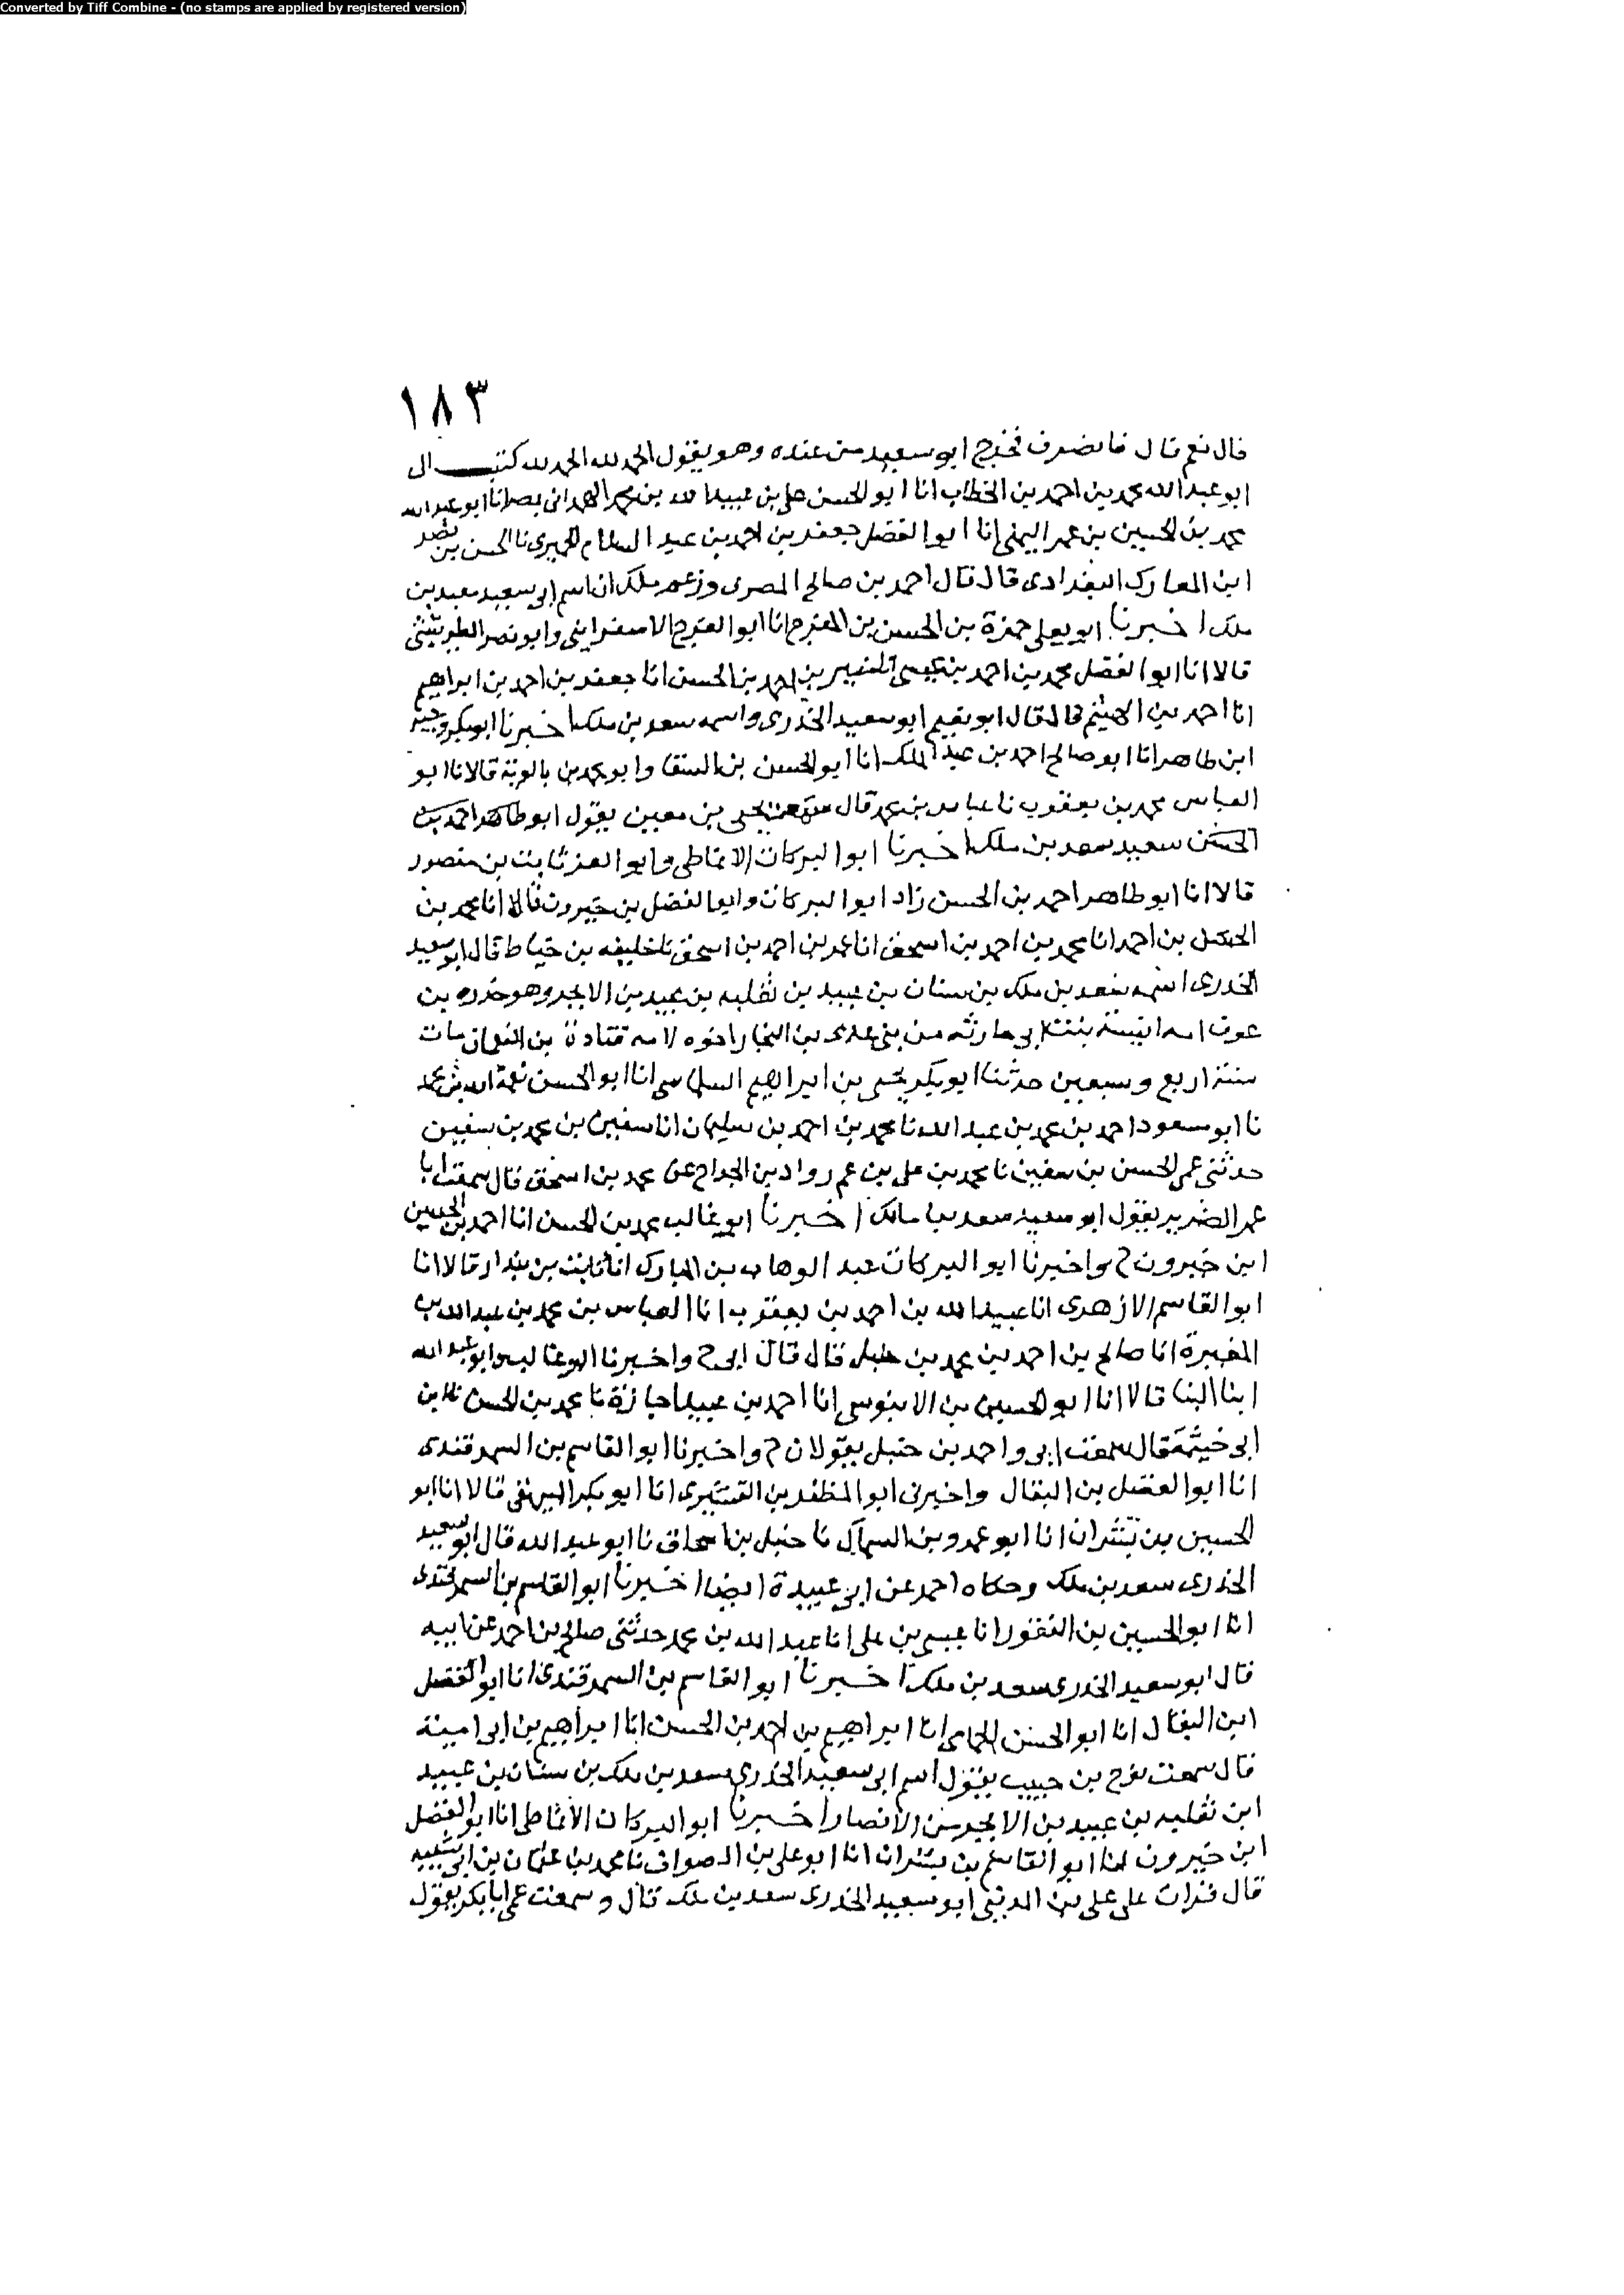 Converted by Tiff Combine - (no stamps are applied by registered version)
١٨٣
قال نعم قال فانصرف فخرج ابو سعيد من عنده وهو يقول الحمد لله الحمد لله كتب ال
ابو عبد الله محمد بن احمد بن الخطاب انا ابو الحسن على بن عبيد الله بن محمد الهمدانى بصر انا ابو عبد الله
محمد بن الحسين بن عمر اليمنى انا ابو الفضل جعفر بن احمد بن عبد السلام الحميرى نا الحسن بن نصر
ابن المعارك البغدادى قال قال احمد بن صالح المصرى وزعم ملك ان اسم ابى سعيد سعد بن
ملك اخبرنا ابو يعلى حمزة بن الحسن بن المفرج انا ابو الفرج الاسفراينى وابو نصر الطريثيثى
قالا انا ابو الفضل محمد بن احمد بن عيسى انا منير بن احمد بن الحسن انا جعفر بن احمد بن ابراهيم
انا احمد بن الهيثم قال قال ابو نعيم ابو سعيد الخدرى واسمه سعد بن ملك اخبرنا ابو بكر وجيه
ابن طاهر انا ابو صالح احمد بن عبد الملك انا ابو الحسن بن السقا وابو محمد بن بالوية قالا نا ابو
العباس محمد بن يعقوب نا عباس بن محمد قال سمعت يحيى بن معين يقول ابو طاهر احمد بن
الحسن سعيد سعد بن ملك اخبرنا ابو البركات الانماطى وابو العز ثابت بن منصور
قالا انا ابو طاهر احمد بن الحسن زاد ابو البركات وابو الفضل بن خيرون قالا انا محمد بن
الحسن بن احمد انا محمد بن احمد بن اسحق انا عمر بن احمد بن اسحق نا خليفه بن خياط قال ابو سعيد
الخدرى اسمه سعد بن ملك بن سنان بن عبيد بن ثعلبه بن عبيد بن الابجر وهو خدره بن
عوف امه انيسة بنت ابى حارثه من بنى عدى بن النجار اخوه لامه قتادة بن النعمان مات
سنة اربع وسبعين حدثنا ابو بكر يحيى بن ابراهيم السلماسى انا ابو الحسن نعمة الله بن محمد
نا ابو سعود احمد بن محمد بن عبد الله نا محمد بن احمد بن سليمان انا سفين بن محمد بن سفين
حدثنى عمى الحسن بن سفين نا محمد بن على بن عم رواد بن الجراح عن محمد بن اسحق قال سمعت ابا
عمر الضرير يقول ابو سعيد سعد بن مالك اخبرنا ابو غالب محمد بن الحسن انا احمد بن الحسين
ابن خيرون ح واخبرنا ابو البركات عبد الوهاب بن المبارك انا ثابت بن بندار قالا انا
ابو القاسم الازهرى انا عبيد الله بن احمد بن يعقوب انا العباس بن محمد بن عبد الله بن
المغيرة انا صالح بن احمد بن محمد بن حنبل قال قال ابى ح واخبرنا ابو غالب وابو عبد الله
ابنا البنا قالا انا ابو الحسين بن الابنوسى انا احمد بن عبيد اجازة نا محمد بن الحسن نا ابن
ابى خيثمة قال سمعت ابى واحمد بن حنبل يقولان ح واخبرنا ابو القاسم بن السمرقندى
انا ابو الفضل بن البقال واخبرنى ابو المظفر بن القشيرى انا ابو بكر البيهقى قالا انا ابو
الحسين بن بشران انا ابو عمرو بن السماك نا حنبل بن اسحاق نا ابو عبد الله قال ابو سعيد
الخدرى سعد بن ملك وحكاه احمد عن ابى عبيدة ايضا اخبرنا ابو القاسم بن السمرقندى
انا ابو الحسين بن النقور انا عيسى بن على انا عبد الله بن محمد حدثنى صالح بن احمد عن ابيه
قال ابو سعيد الخدرى سعد بن ملك اخبرنا ابو القاسم بن السمرقندى انا ابو الفضل
ابن البقال انا ابو الحسن الحمامى انا ابراهيم بن احمد بن الحسن انا ابراهيم بن ابى امينة
قال سمعت نوح بن حبيب يقول اسم ابى سعيد الخدرى سعد بن ملك بن سنان بن عبيد
ابن ثعلبه بن عبيد بن الابجر من الانصار اخبرنا ابو البركات الانماطى انا ابو الفضل
ابن خيرون انا ابو القاسم بن بشران انا ابو على بن الصواف نا محمد بن عثمان بن ابى شيبه
قال قرات على على بن المدينى ابو سعيد الخدرى سعد بن ملك قال وسمعت عمى ابا بكر يقول